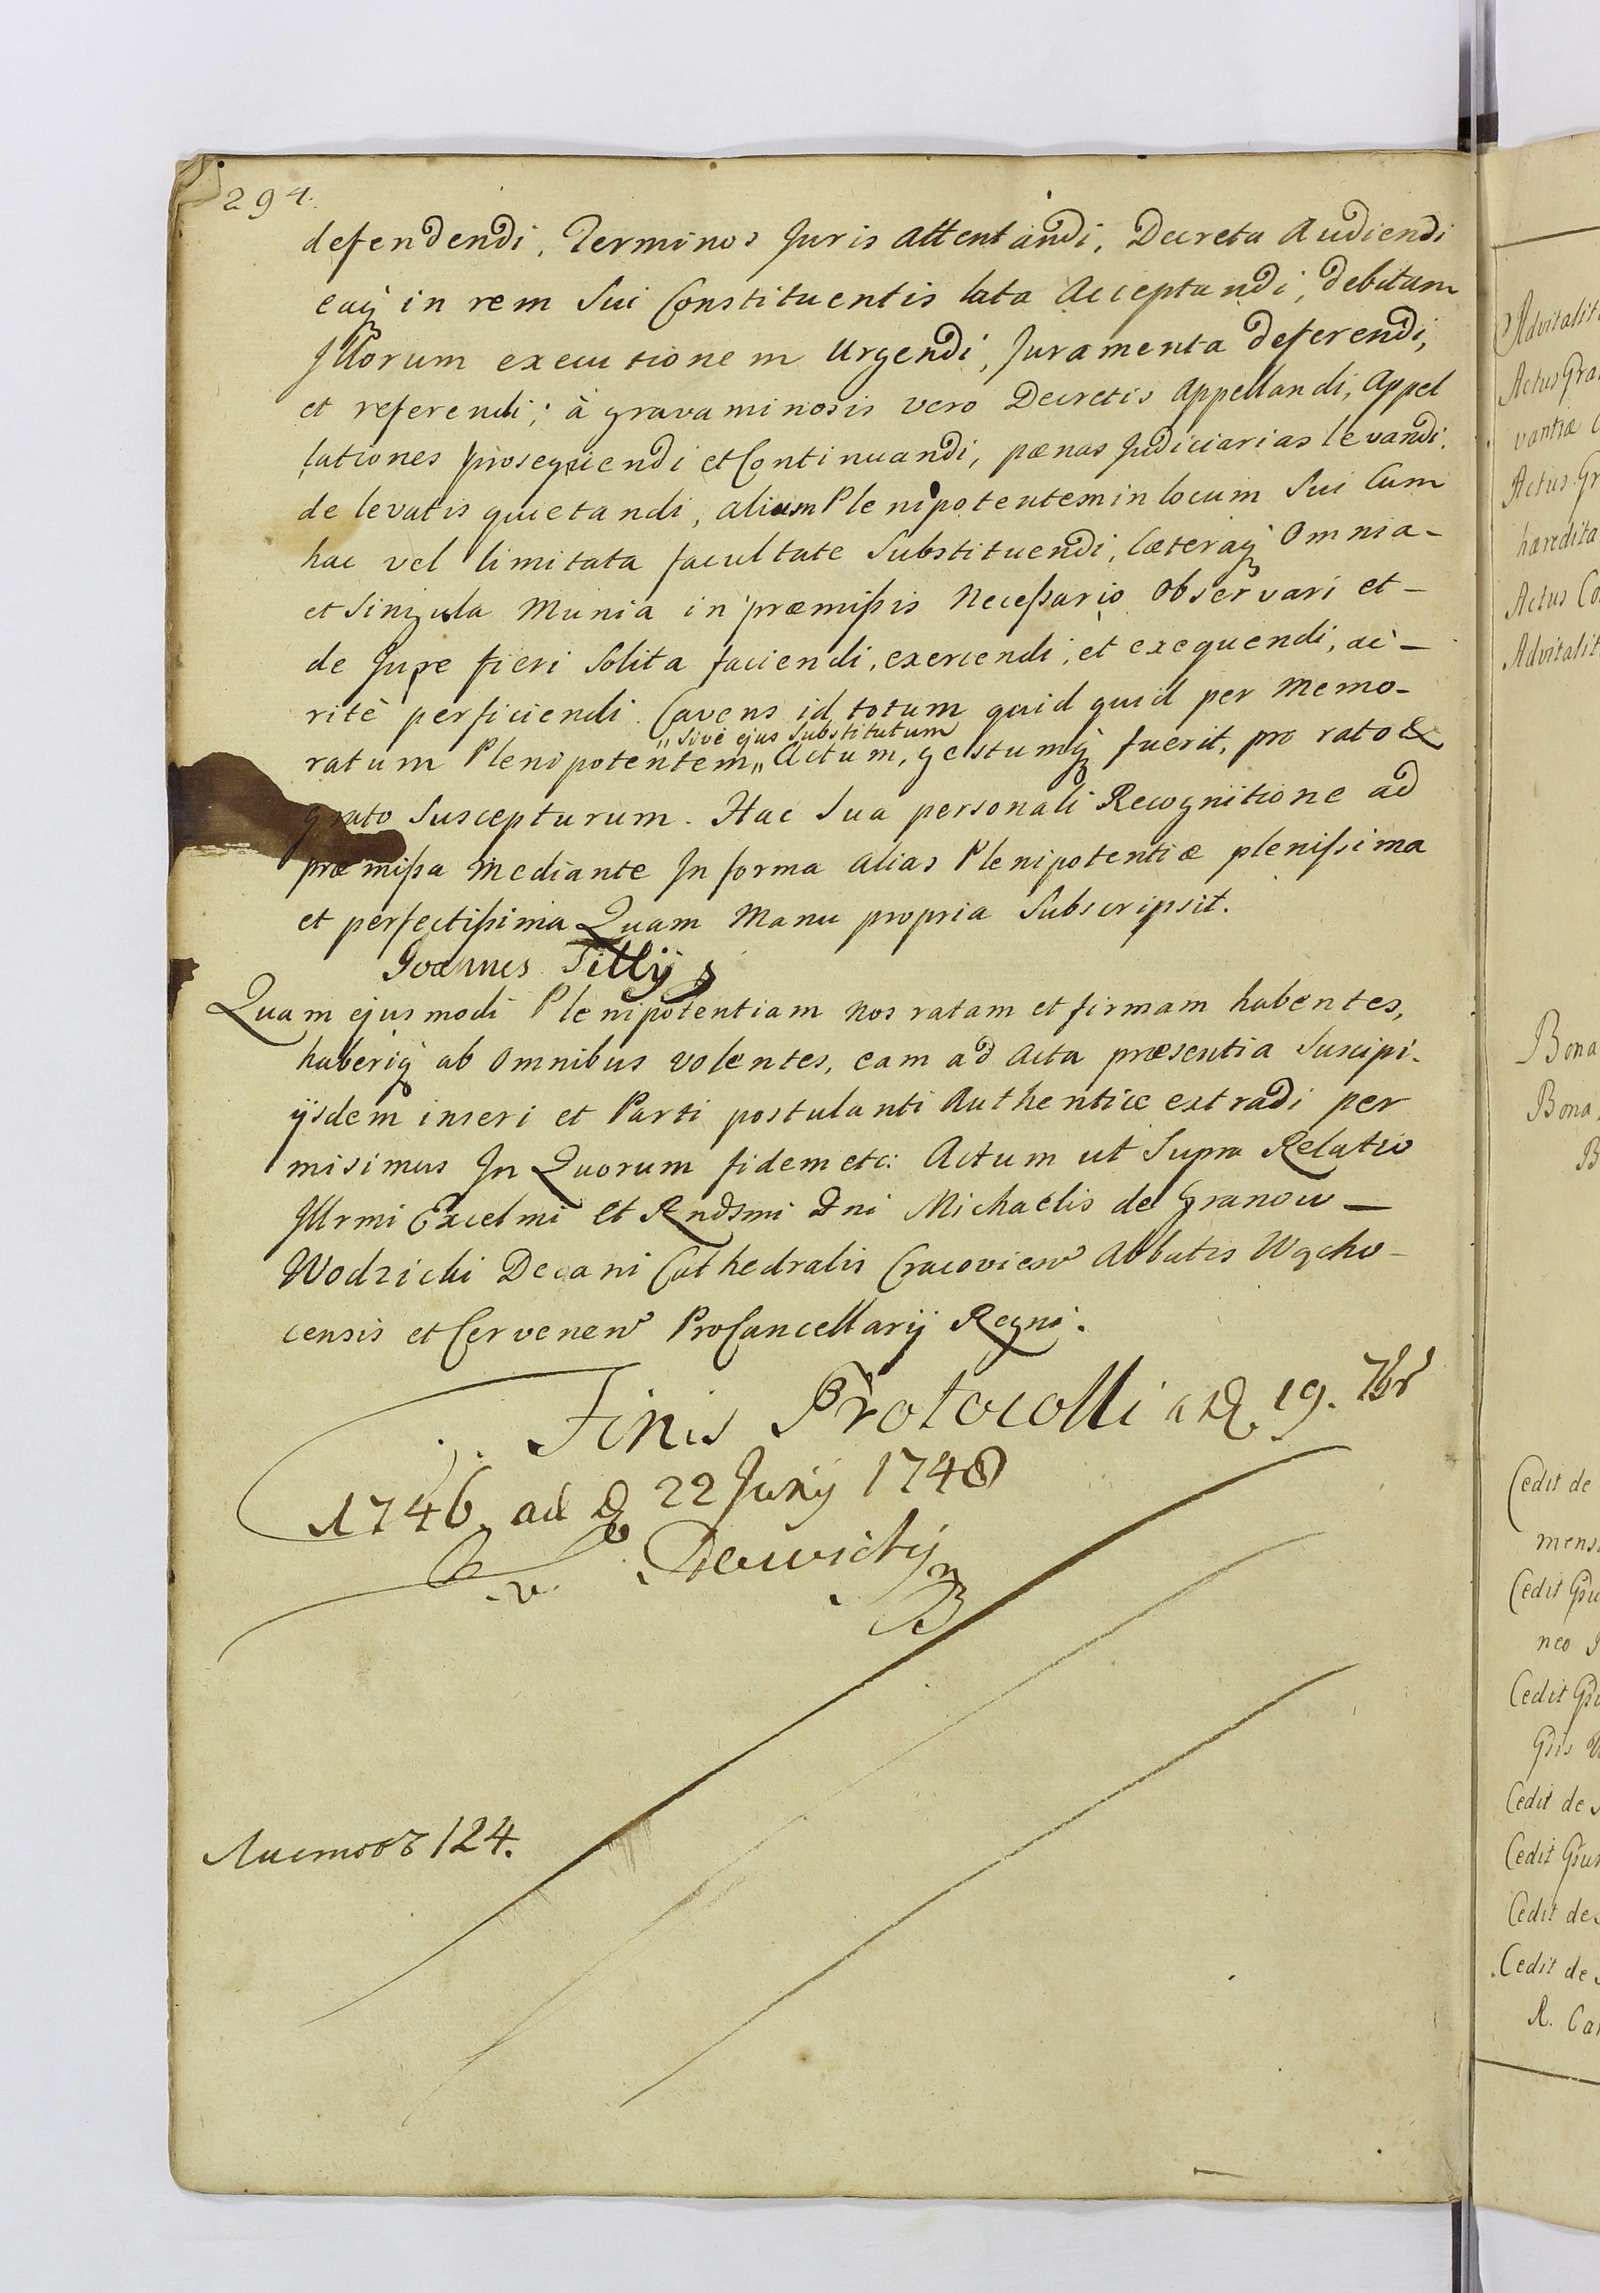 294.
defendendi, Terminos Juris attentandi, Decreta Audiendi
eaq; in rem Sui Constituentis lata Acceptandi, debitam
Illorum executionem Urgendi, Juramenta deferendi,
et referendi; à gravaminosis vero Decretis Appellandi, Appel
lationes prosequendi et Continuandi, pænas Judiciarias levandi,
de levatis quietandi, alium Plenipotentem in locum Sui Cum
hac vel limitata facultate Substituendi, Cæteraq; Omnia-
et Singula Munia in præmißis Neceßario Observari et-
de Jure fieri Solita faciendi, exercendi, et exequendi, ac-
ritè perficiendi. Cavens id totum quid quid per Memo-
" Sive ejus Substitutum
ratum Plenipotentem " Actum, gestumq; fuerit, pro rato &
grato Suscepturum. Hac Sua personali Recognitione ad
præmißa Mediante In forma alias Plenipotentiæ plenißima
et perfectißima Quam Manu propria Subscripsit.
Joannes Tilly
Quam ejusmodi Plenipotentiam Nos ratam et firmam habentes,
haberiq; ab Omnibus volentes, eam ad Acta præsentia Suscipi-
ijsdem inseri et Parti postulanti Authenticæ extradi per
misimus In Quorum fidem etc: Actum ut Supra Relatio
Illrmi Excelmi et Rndsmi Dni Michaelis de Granow-
Wodzicki Decani Cathedralis Cracovien Abbatis Wącho-
censis et Cervenen ProCancellarij Regni.
Finis Protocolli a D. 19. 7br
1746 ad D 22 Junij 1748
Листовъ 124.
Advitalit
Actus Gra
vantiæ
Actus Gr
hæredita
Actus Co
Advitalit
Bona
Bona
B
Cedit de
mens
Cedit
neo
Cedit
Cedit de
Cedit
Cedit de
Cedit de
R. Ca